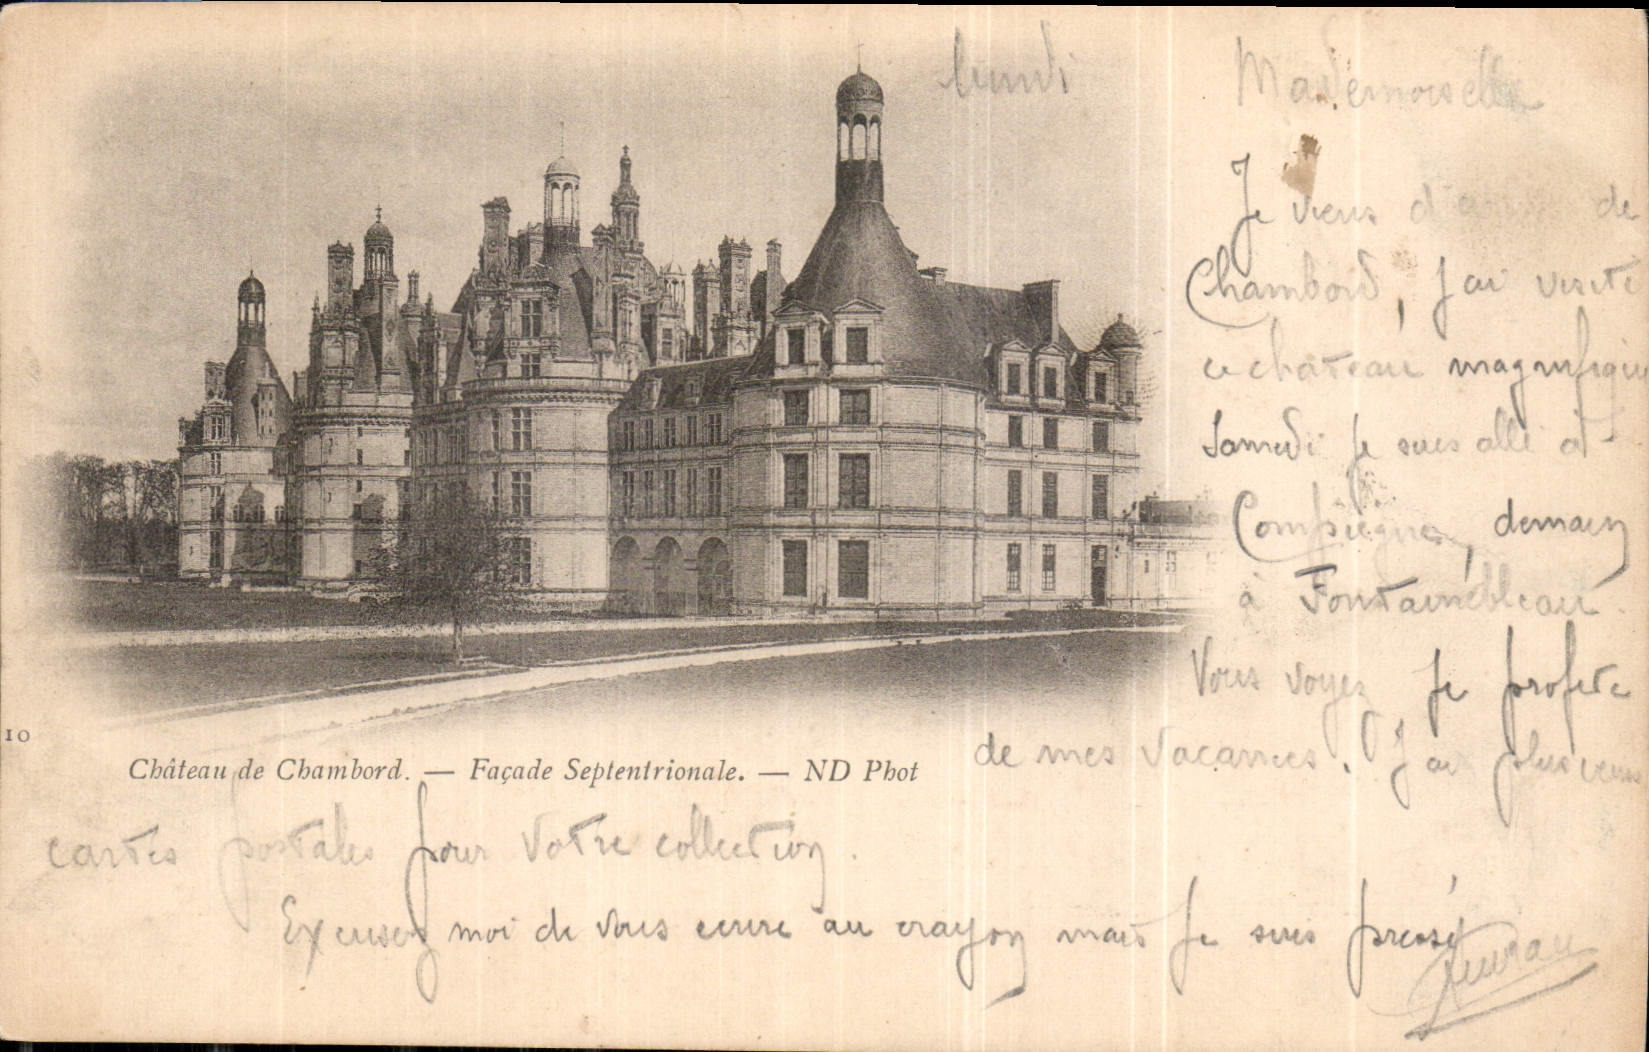 lundi
Mademoiselle
Je viens de
Chambord, j'ai visité
ce château magnifique
Samedi je suis allé à
Compiègne, demain
à Fontainebleau.
Vous voyez je profite
de mes vacances. J'ai plusieurs
cartes postales pour votre collection.
Excusez moi de vous ecrire au crayon mais je suis pressé
10
Château de Chambord. — Façade Septentrionale. — ND Phot